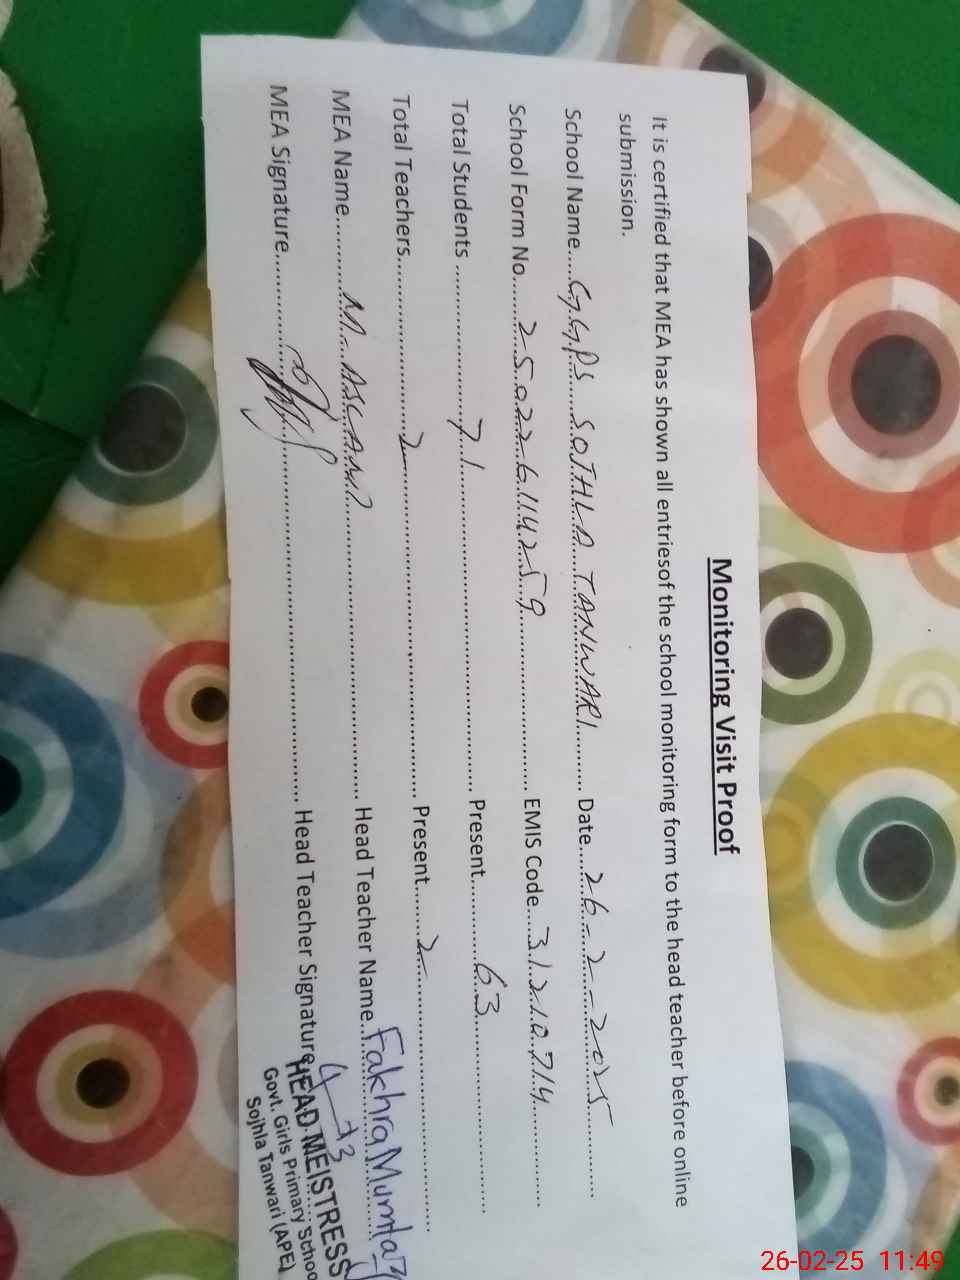 Monitoring Visit Proof
It is certified that MEA has shown all entriesof the school monitoring form to the head teacher before online
submission.
School Name....GGPS SOJHLA TANWARI.......... Date....26-2-2025..........
School Form No......25022611 4259.......... EMIS Code...31210714..........
Total Students ..........71.......... Present..........63..........
Total Teachers..........2.......... Present.......2..........
MEA Name..........M. ASLAM.......... Head Teacher Name..Fakhra Mumtaz
MEA Signature.......... Head Teacher Signature
HEAD MEISTRESS
Govt. Girls Primary School
Sojhla Tanwari (APE)
26-02-25 11:49